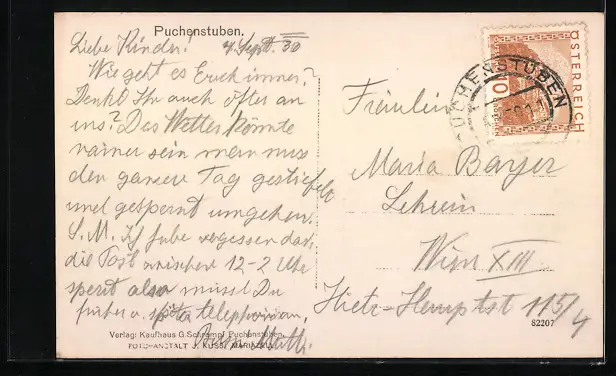 Puchenstuben.
Liebe Kinder! 4. Sept. 30
Wie geht es Euch immer?
Denkt Ihr auch öfter an
uns? Das Wetter könnte
sein man muss
den ganzen Tag gestiefelt
und gespornt umgehen.
S. M. Ich habe vergessen dass
die Post zwischen 12-2 Uhr
sperrt also musst Du
früher o. später telephonieren,
Mutti.
Verlag: Kaufhaus G. Schrampf Puchenstuben.
FOTO-ANSTALT J. KUSS, MARIAZELL
ÖSTERREICH
10
PUCHENSTUBEN
Fräulein
Maria Bayer
Lehrerin
Wien XIII
Hietz-Hauptst 115/4
82207